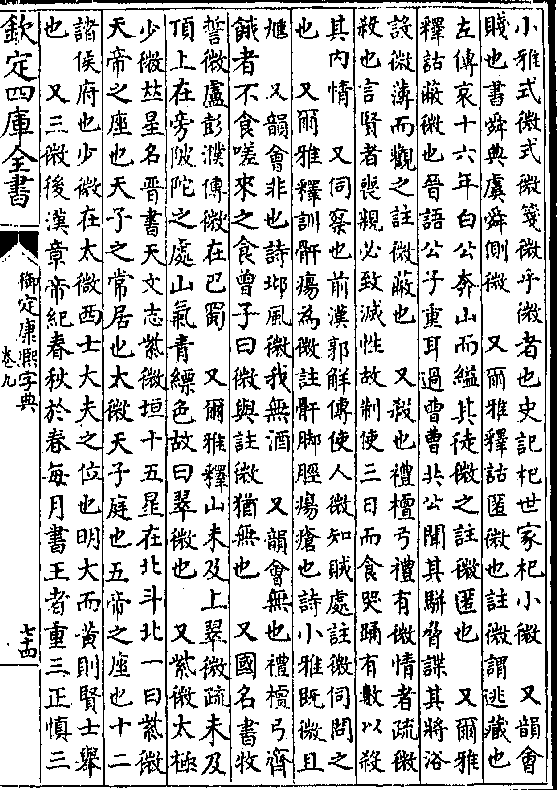 小雅式微式微箋微乎微者也史記杞世家杞小微　又韻會
賤也書舜典虞舜側微　又爾雅釋詁匿微也註微謂逃藏也
左傳哀十六年白公奔山而縊其徒微之註微匿也　又爾雅
釋詁蔽微也晉語公子重耳過曹曹共公聞其駢脅諜其將浴
設微薄而觀之註微蔽也　又殺也禮檀弓禮有微情者疏微
殺也言賢者喪親必致滅性故制使三日而食哭踊有數以殺
其內情　又伺察也前漢郭解傳使人微知賊處註微伺問之
也　又爾雅釋訓骭瘍為微註骭脚脛瘍瘡也詩小雅既微且
尰　又韻會非也詩邶風微我無酒　又韻會無也禮檀弓齊
餓者不食嗟來之食曾子曰微與註微猶無也　又國名書牧
誓微盧彭濮傳微在巴蜀　又爾雅釋山未及上翠微疏未及
頂上在旁陂陀之處山氣青縹色故曰翠微也　又紫微太極
少微𠀤星名晉書天文志紫微垣十五星在北斗北一曰紫微
天帝之座也天子之常居也太微天子庭也五帝之座也十二
諸侯府也少微在太微西士大夫之位也明大而黃則賢士舉
也　又三微後漢章帝紀春秋於春每月書王者重三正慎三
欽定四庫全書
御定康熙字典
卷九
七十四